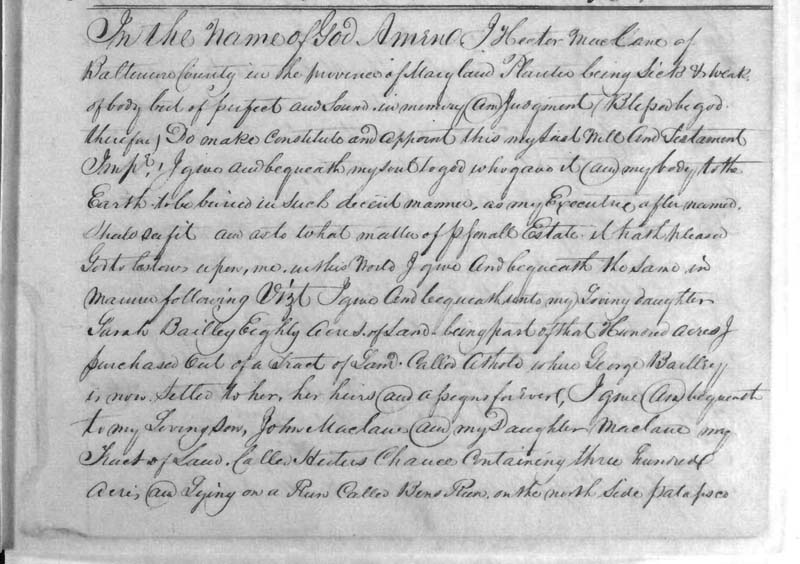 In the Name of God Amen I Hector Maclane of
Baltimore County in the province of Maryland Planter being Sick & weak
of body but of perfect and Sound in memory (and Judgment / Blessed be god
therefore) Do make Constitute and appoint this my Last Will And Testament
Impr. I give and bequeath my soul to god who gave it (and my body to the
Earth to be buried in Such decent manner, as my Executrix after named.
Shall see fit and as to what matter of psonall Estate it hath pleased
God to bestow upon, me in this World I give And bequeath the same in
Manner following Vizt I give And bequeath unto my Loving daughter
Sarah Bailley Eighty Acres of Land being part of that Hundred acres I
purchased Out of a Tract of Land Called Athole where George Bailley
is now Setled to her, her heirs (and assigns for Ever, I give And bequeath
to my Loving Son, John Maclane (and my Daughter Maclane my
Tract of Land Called Hectors Chance Containing three hundred
Acres, and Lying on a Run Called Bens Run, on the north Side patapsco